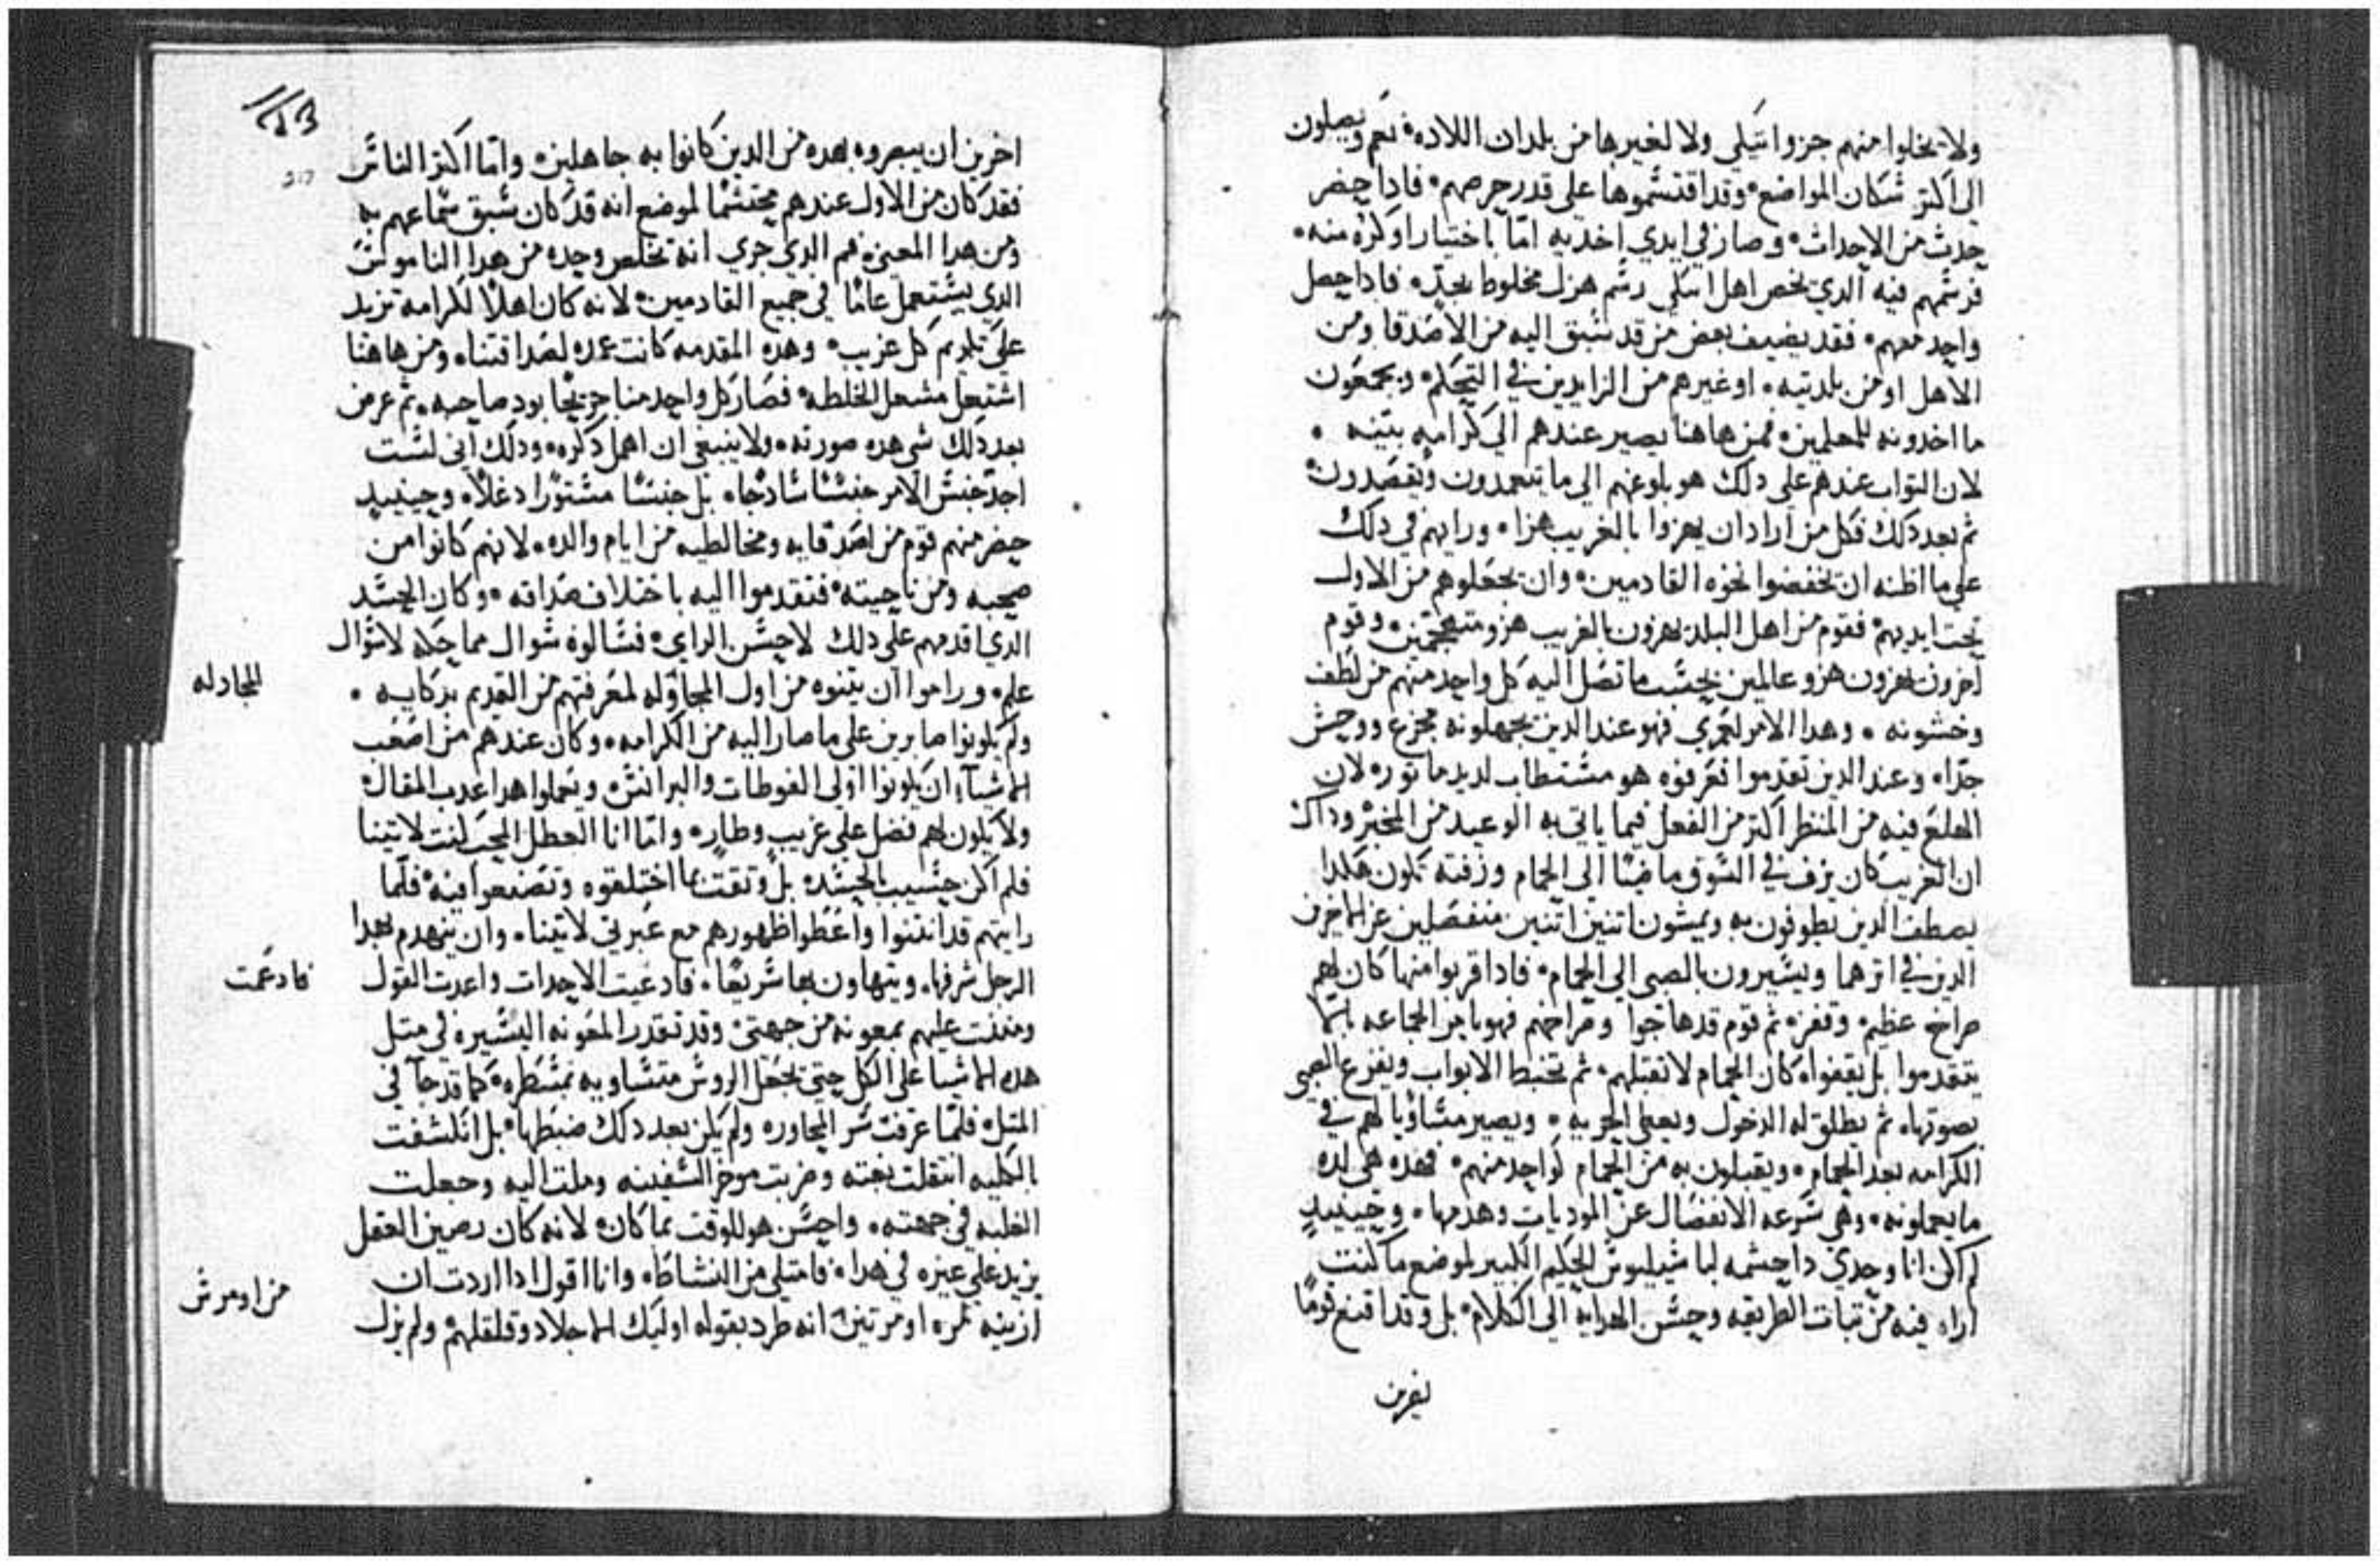 ولا يخلوا منهم جزوا تيكي ولا لغيرها من بلدان اللاده نعم ويصلون
الي اكتر سكان المواضع وقد اقتسموها على قدر حرصهم فادا حضر
حدث من الاحداث وصار في ايدي اخديه امّا باختيار او كره منه
فرسمهم فيه الدي يخص اهل اتيكي رسم هزل مخلوط بجدّ فادا حصل
واحد معهم فقد يضيف بعض من قد سبق اليه من الاصدقا ومن
الاهل او من بلديته او غيرهم من الزايدين في التحكم ويجمعون
ما اخدونه للمعلمين فمن هاهنا يصير عندهم الي كرامه بتيه
لان التواب عندهم على دلك هو بلوغهم الي ما يتعمدون ويقصدون
ثم بعد دلك فكل من اراد ان يهزوا بالغريب هزا ورايهم في دلك
على ما اظنه ان يخفضوا نحوه القادمين وان يجعلوهم من الاول
تحت ايديهم فقوم من اهل البلد يهزون بالغريب هزو متهجمين وقوم
آخرون يهزون هزو عالمين بحسب ما تصل اليه كل واحد منهم من لطف
وخشونه وهدا الامر لعمري فهو عند الدين يجهلونه مجزع ووحش
جدّا وعند الدين تقدموا فعرفوه هو مستطاب لديد ماتوره لان
الهلع فيه من المنظر اكتر من الفعل فيما ياتي به الوعيد من المخبر وداك
ان الغريب كان يزف في السوق ماضيًا الي الحمام وزفته تكون هكدا
يصطف الدين يطوفون به ويمشون اتنين اتنين منفصلين عن الاخرين
الدين في اترهما ويسيرون بالصبي الي الحمام فادا قربوا منها كان لهم
صراخ عظيم وقفز ثم قوم قد هاجوا وصراخهم فهو يامر الجماعه بالّا
يتقدموا بل يقفوا كان الحمام لا تقبلهم ثم تخبط الابواب ويفزع الصبي
بصوتها ثم يطلق له الدخول ويعطى الحريه ويصير مساويا لهم في
الكرامه بعد الحمام ويقبلون به من الحمام كواحد منهم فهده هي لده
ما يعملونه وهي سرعه الانفصال عن الموديات وهدمها وحينيد
لم اكن انا وحدي داحشمه لباسيليوس الحكيم الكبير لموضع ما كنت
اراه فيه من تبات الطريقه وحسن الهدايه الي الكلام بل وقد اقنع قومًا
اخرين ان يبصروه بهده من الدين كانوا به جاهلين وامّا اكتر الناس
فقد كان من الاول عندهم محتشمًا لموضع انه قد كان سبق سماعهم به
ومن هدا المعنى فهم الدي جري انه تخلص وحده من هدا الناموس
الدي يستعمل عامًا في جميع القادمين لانه كان اهلًا لكرامه تزيد
على تكريم كل غريب وهده المقدمه كانت عمده لصداقتنا ومن هاهنا
اشتعل مشعل الخلطه فصار كل واحد منا جريحًا بود صاحبه ثم عرض
بعد دلك شي هده صورته ولا ينبغي ان اهمل دكره ودلك اني لست
اجد جنس الامر جنسًا سادجًا بل جنسًا مستورًا دغلًا وحينيد
حضر منهم قوم من اصدقايه ومخالطيه من ايام والده لانهم كانوا من
صحبه ومن ناحيته فتقدموا اليه باختلاف صداقه وكان الحسد
الدي اقدمهم على دلك لا حسن الراي فسالوه سوال مماحكه لا سوال
علم وراموا ان يتنوه من اول المجاوله لمعرفتهم من القديم بدكايه
المجادله
ولم يكونوا صابرين على ما صار اليه من الكرامه وكان عندهم من اصعب
الاشيآء ان يكونوا اولى الفوطات والبرانس ويحملوا هدا عدب المقال
ولا يكون لهم فضل على غريب وطار وامّا انا العطل المحب كنت لاتينا
فلم اكن حسيب الحسد بل وتقت بما اختلقوه وتصنعوا فيه فلما
رايتهم قد انتنوا واعطوا ظهورهم مع غيرتي لاتينا وان ينهدم بهدا
الرجل شرفها ويتهاون بها سريعًا فادعيت الاحدات واعدت القول
فادعمت
ومننت عليهم بمعونه من جهتي وقد تقدر المعونه اليسيره في متل
هده الاشيا على الكل حتى تجعل الروس متساويه بمشطره كما قد جآ في
المتل فلمّا عرفت سر المحاوره ولم يكن بعد دلك ضبطها بل انكشفت
بالكليه انتقلت بغته وضربت موخر السفينه وملت اليه وجعلت
الغلبه في جهته واحسن هو للوقت بما كان لانه كان رصين العقل
يزيد على غيره في هدا فامتلى من النشاط وانا اقول ادا اردت ان
ازينه بمره او مرتين انه طرد بقوله اوليك الاجلاد وقلقلهم ولم يزل
من اومرس